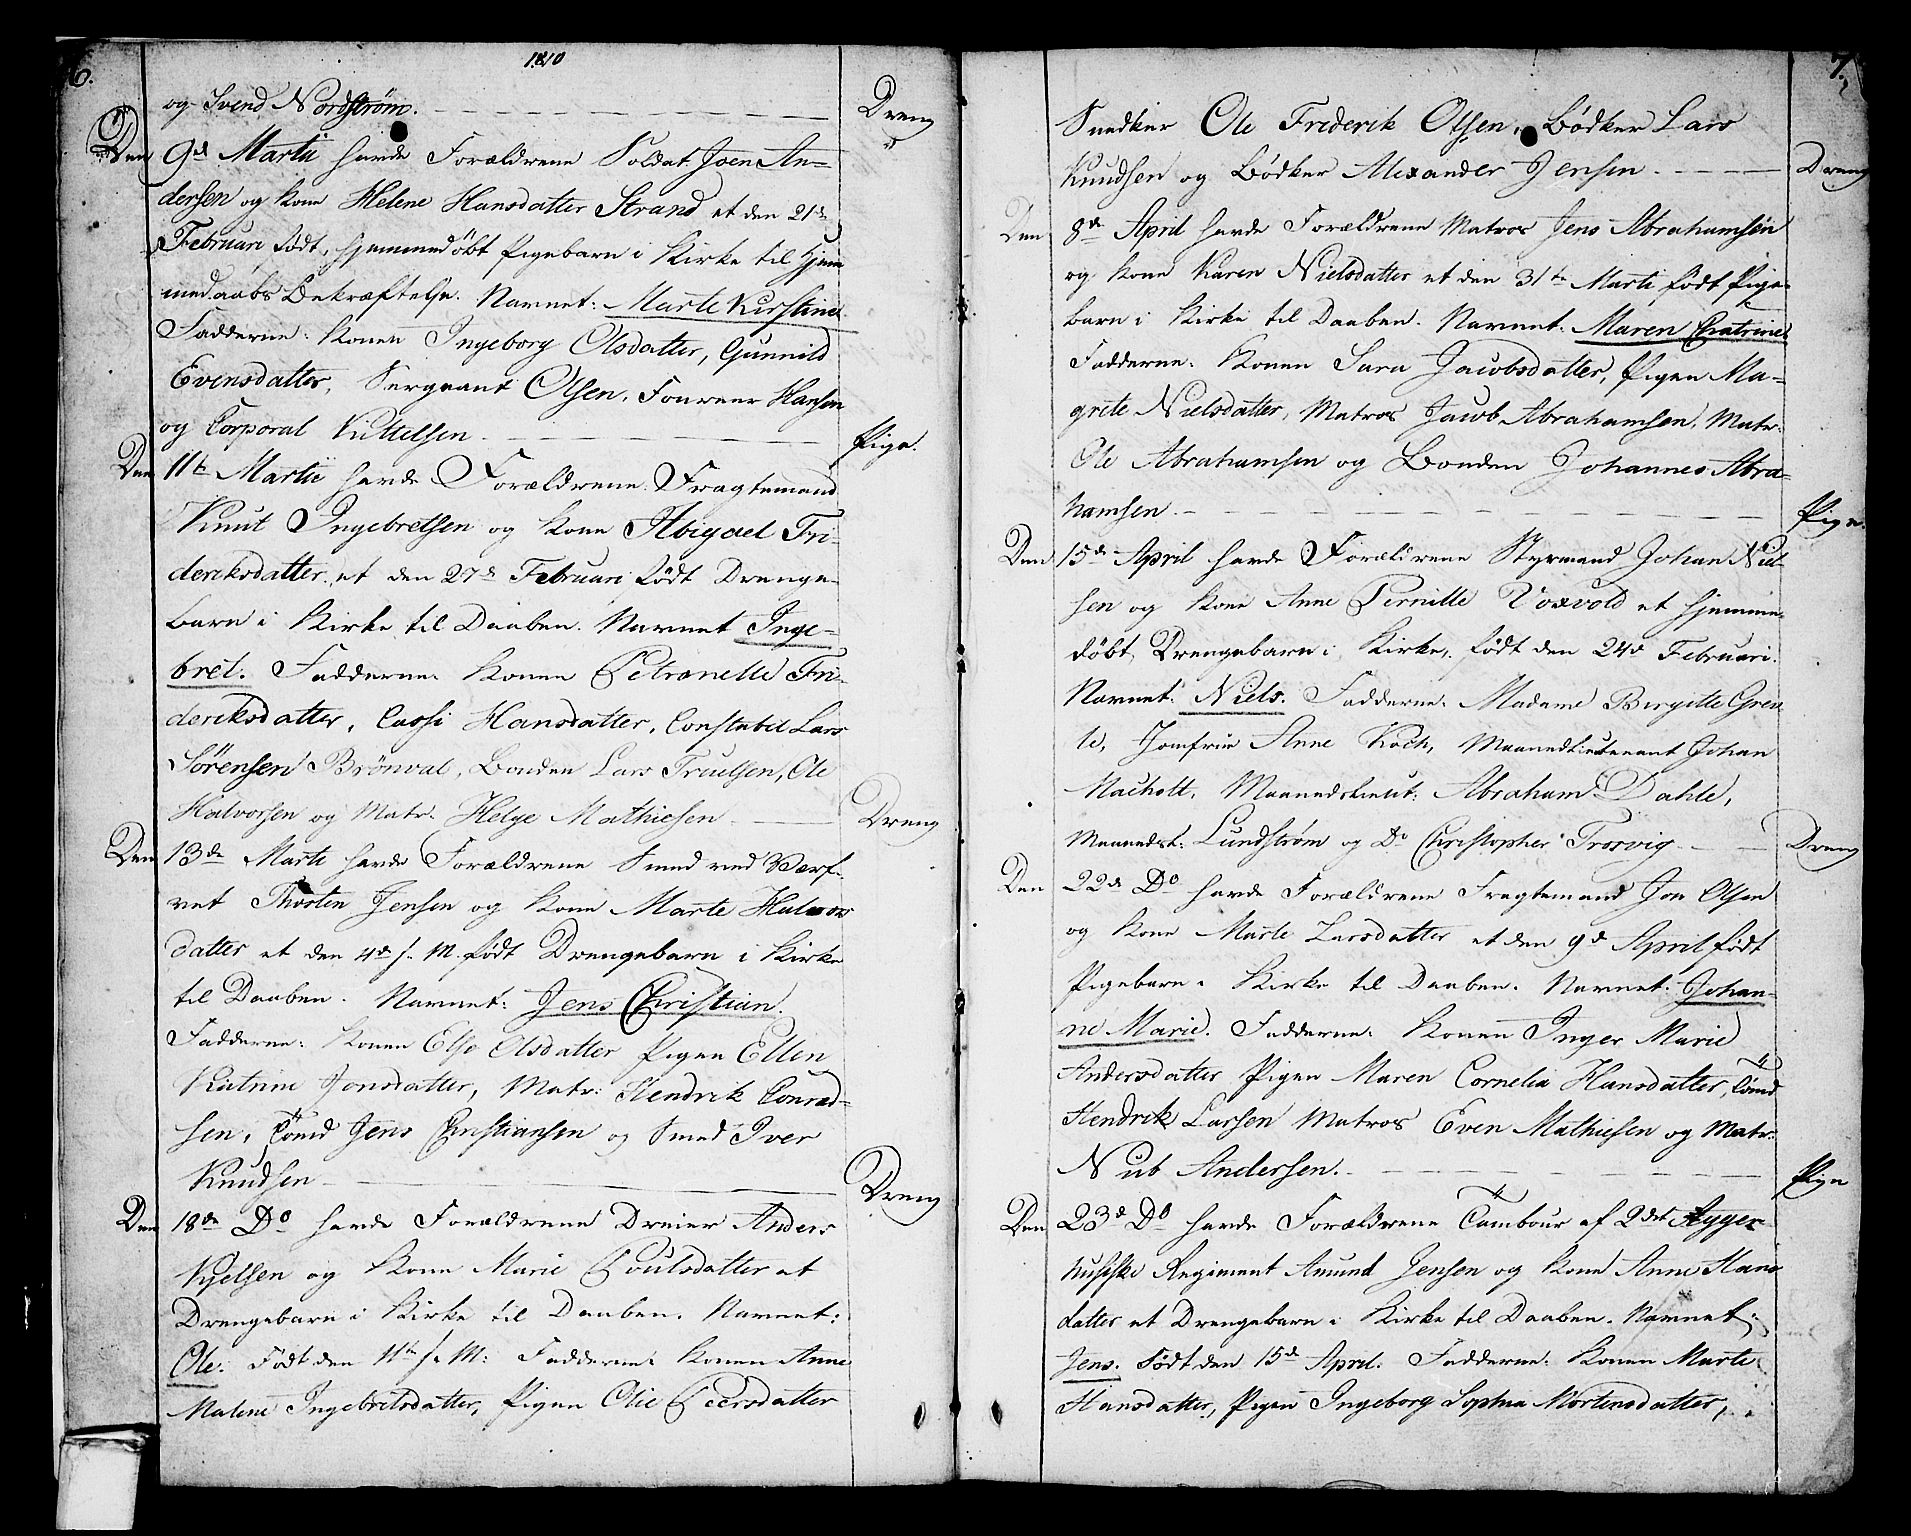 6.
1810
og Svend Nordstrøm. Dreng
Den 9de Martii havde Forældrene Soldat Joen An-
dersen og Kone Helene Hansdatter Strand et den 21de
Februari født, hjemmedøbt Pigebarn i Kirke til Hjem
medaabs Bekræftelse. Navnet: Marte Kirstine
Fadderne: Konen Ingeborg Olsdatter, Gunnild
Evensdatter, Sergeant Olsen, Foureer Hansen
og Corporal Kittelsen. Pige.
Den 11te Martii havde Forældrene Fragtemand
Knut Ingebretsen og Kone Abigael Fri-
deriksdatter et den 27de Februari født Drenge-
barn i Kirke til Daaben. Navnet Inge-
bret. Fadderne. Konen Petronelle Fri-
deriksdatter, Cassi Hansdatter, Constabel Lars
Sørensen Brönval, Bonden Lars Truelsen, Ole
Halvorsen og Matr. Helge Mathiesen Dreng
Den 13de Marti havde Forældrene Smed ved Værf-
vet Thosten Jensen og Kone Marte Halvors
datter et den 4de s. M. født Drengebarn i Kirke
til Daaben. Navnet: Jens Christian.
Fadderne: Konen Else Olsdatter Pigen Ellen
Katrine Jonsdatter, Matr: Hendrik Conrad-
sen, Tömd Jens Christiansen og Smed Iver
Knudsen Dreng
Den 18de Do havde Forældrene Dreier Anders
Kjelsen og Kone Marie Poulsdatter et
Drengebarn i Kirke til Daaben. Navnet:
Ole. Født den 11te s. M: Fadderne. Konen Anne
Malene Ingebretsdatter, Pigen Olie Peersdatter
7.
Snedker Ole Frederik Olsen, Bødker Lars
Knudsen og Bødker Alexander Jensen. Dreng
Den 8de April havde Forældrene Matros Jens Abrahamsen
og Kone Karen Nielsdatter et den 31te Marti født Pige-
barn i Kirke til Daaben. Navnet: Maren Chatrine
Fadderne. Konen Sara Jacobsdatter, Pigen Ma-
grete Nielsdatter, Matros Jacob Abrahamsen, Matr.
Ole Abrahamsen og Bonden Johannes Abra-
hamsen. Pige.
Den 15de April havde Forældrene Styrmand Johan Niel
sen og Kone Anne Pernille Voxvold et hjemme-
døbt Drengebarn i Kirke, født den 24de Februari.
Navnet: Niels. Fadderne. Madame Birgitte Gren
le, Jomfrue Anne Koch, Maanedslieutenant Johan
Nacholt, Maanedslieut: Abraham Dahle,
Maanedsl: Lundstrøm og Do Christopher Trosvig Dreng
Den 22de Do havde Forældrene Fragtemand Jon Olsen
og Kone Marte Larsdatter et den 9de April født
Pigebarn i Kirke til Daaben. Navnet: Johan-
ne Marie. Fadderne: Konen Inger Marie
Andersdatter Pigen Maren Cornelia Hansdatter, Tömd
Hendrik Larsen Matros Even Mathiesen og Matr:
Nub Andersen. Pige
Den 23de Do havde Forældrene Tambour af 2det Agger-
husiske Regiment Amund Jensen og Kone Anne Hans
datter et Drengebarn i Kirke til Daaben. Navnet:
Jens. Født den 15de April. Fadderne. Konen Marte
Hansdatter, Pigen Ingeborg Sophia Mortensdatter,